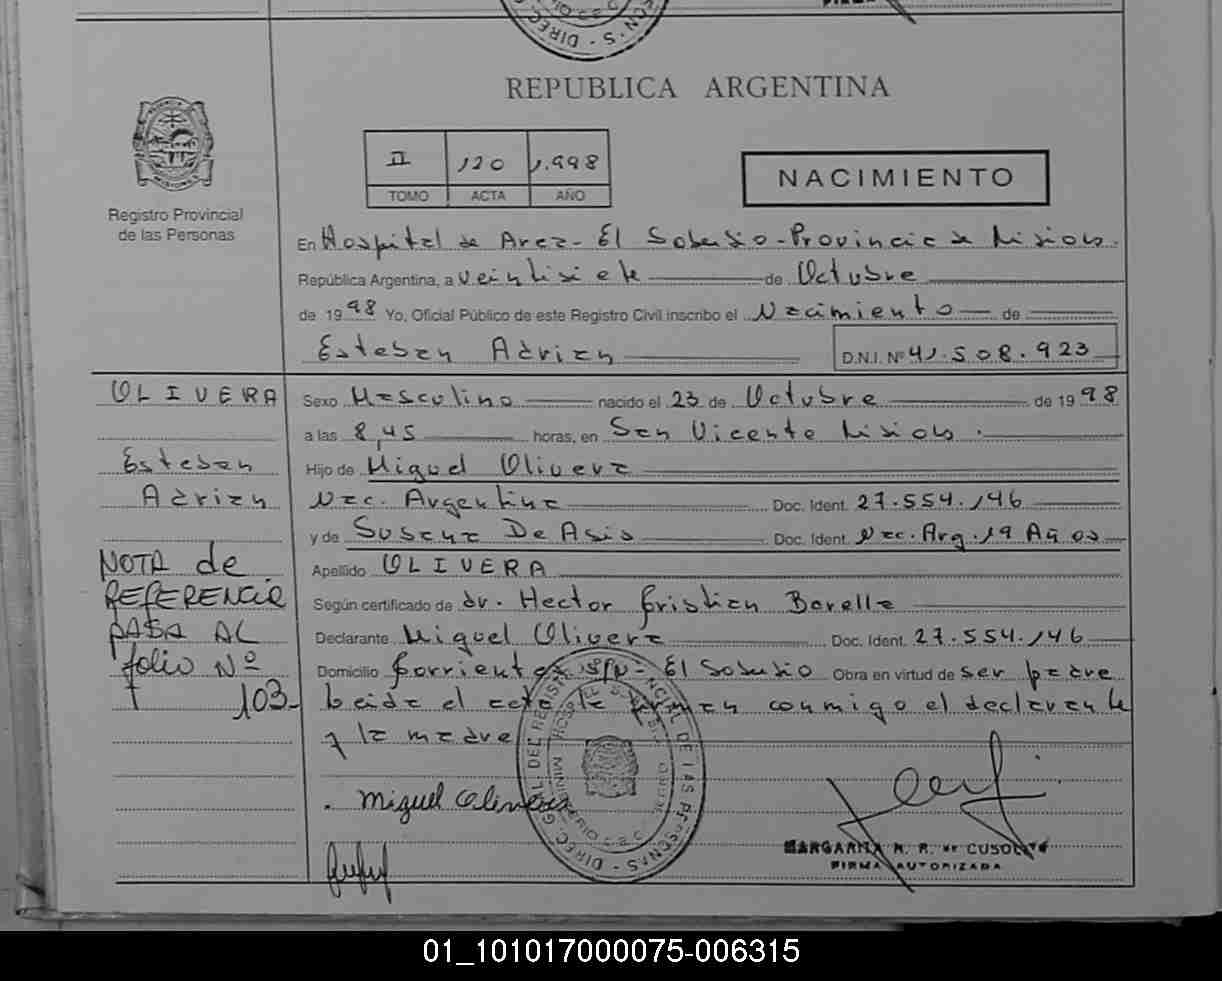 REPUBLICA ARGENTINA
II 120 1.998
TOMO ACTA AÑO
NACIMIENTO
Registro Provincial
de las Personas
En Hospital de Area - El Soberbio - Provincia de Misiones.
República Argentina, a veintisiete de Octubre
de 1998 Yo, Oficial Público de este Registro Civil inscribo el Nacimiento de
Esteban Adrian D.N.I. Nº 41.508.923
OLIVERA
Esteban
Adrian
NOTA de
REFERENCIA
PASA AL
folio Nº
103-
Sexo Masculino nacido el 23 de Octubre de 1998
a las 8,45 horas, en San Vicente Misiones.
Hijo de Miguel Olivera
Nac. Argentina Doc. Ident. 27.554.146
y de Susana De Asis Doc. Ident. Nac. Arg. 19 Años
Apellido OLIVERA
Según certificado de dr. Hector Cristian Borella
Declarante Miguel Olivera Doc. Ident. 27.554.146
Domicilio Corrientes S/N - El Soberbio Obra en virtud de ser padre
Leida el acta la firman conmigo el declarante
y la madre
Miguel Olivera
MARGARITA R. R. de CUSOLITO
FIRMA AUTORIZADA
DIREC. GRAL. DEL REGISTRO PROVINCIAL DE LAS PERSONAS
01_101017000075-006315